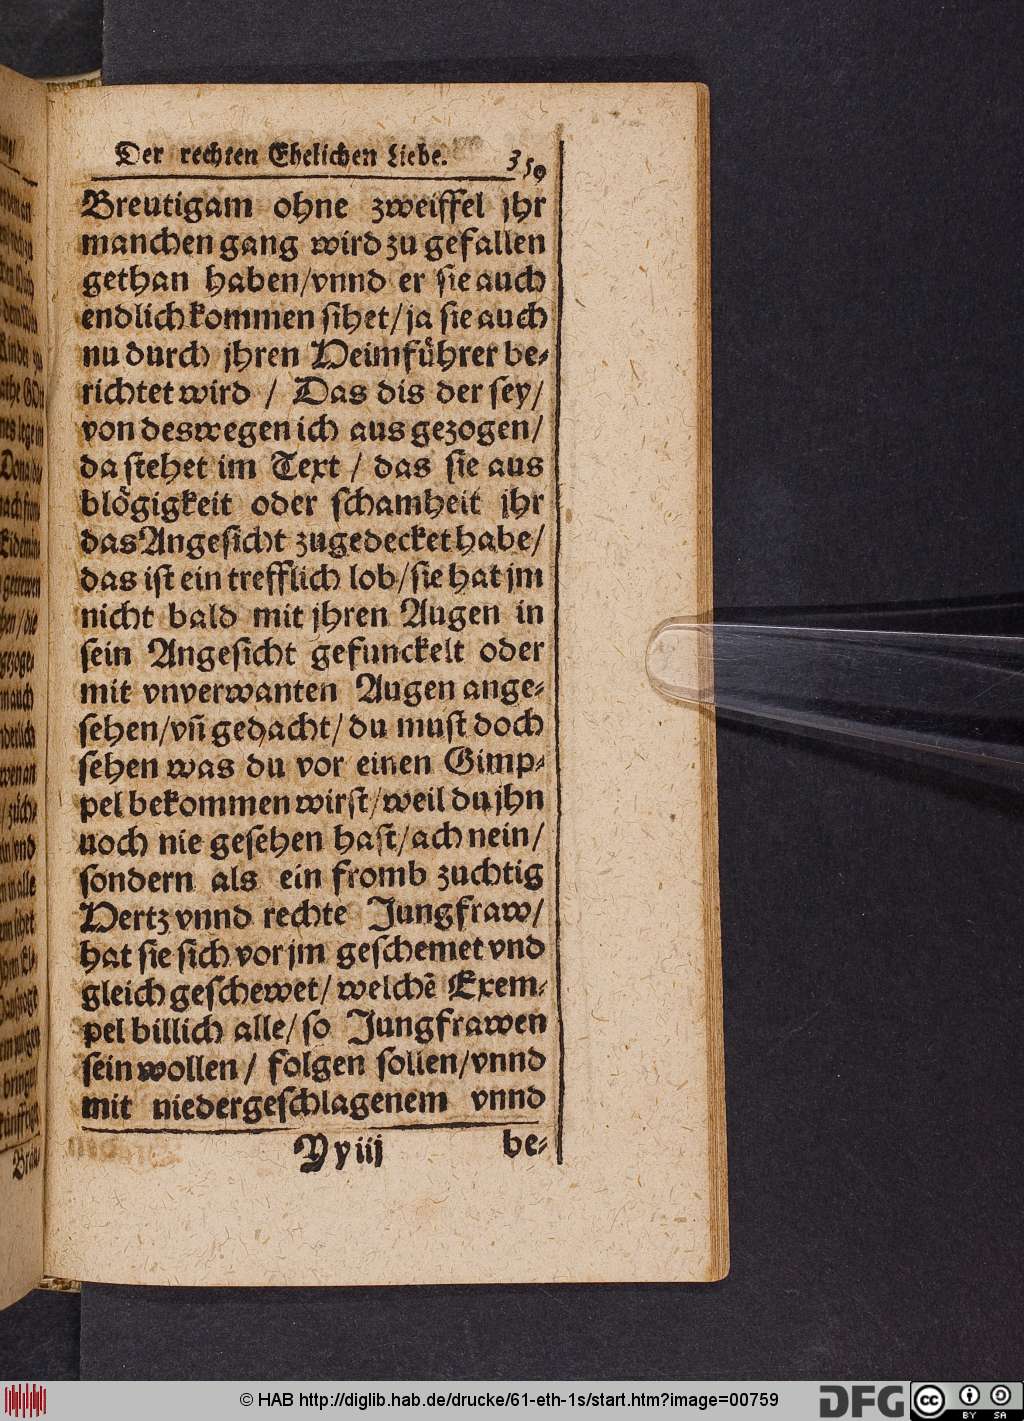 Der rechten Ehelichen Liebe. 359
Breutigam ohne zweiffel jhr
manchen gang wird zu gefallen
gethan haben/vnnd er sie auch
endlich kommen sihet/ja sie auch
nu durch jhren Heimführer be-
richtet wird / Das dis der sey/
von deswegen ich aus gezogen/
da stehet im Text / das sie aus
blögigkeit oder schamheit jhr
das Angesicht zugedecket habe/
das ist ein trefflich lob/sie hat jm
nicht bald mit jhren Augen in
sein Angesicht gefunckelt oder
mit vnverwanten Augen ange-
sehen/vñ gedacht/ du must doch
sehen was du vor einen Gimp-
pel bekommen wirst/weil du jhn
noch nie gesehen hast/ach nein/
sondern als ein fromb zuchtig
Hertz vnnd rechte Jungfraw/
hat sie sich vor jm geschemet vnd
gleich geschewet/ welchẽ Exem-
pel billich alle/ so Jungfrawen
sein wollen / folgen sollen/vnnd
mit niedergeschlagenem vnnd
Yyiij be-
© HAB http://diglib.hab.de/drucke/61-eth-1s/start.htm?image=00759
DFG
cc BY SA